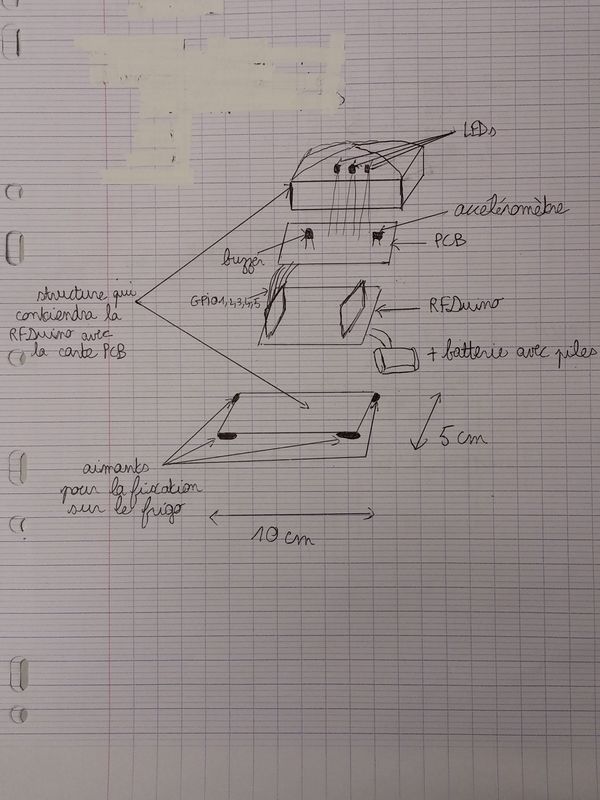 LEDs
accéléromètre
PCB
buzzer
GPIO1,2,3,4,5
structure qui
contiendra la
RFDuino avec
la carte PCB
RFDuino
+ batterie avec piles
5 cm
aimants
pour la fixation
sur le frigo
10 cm